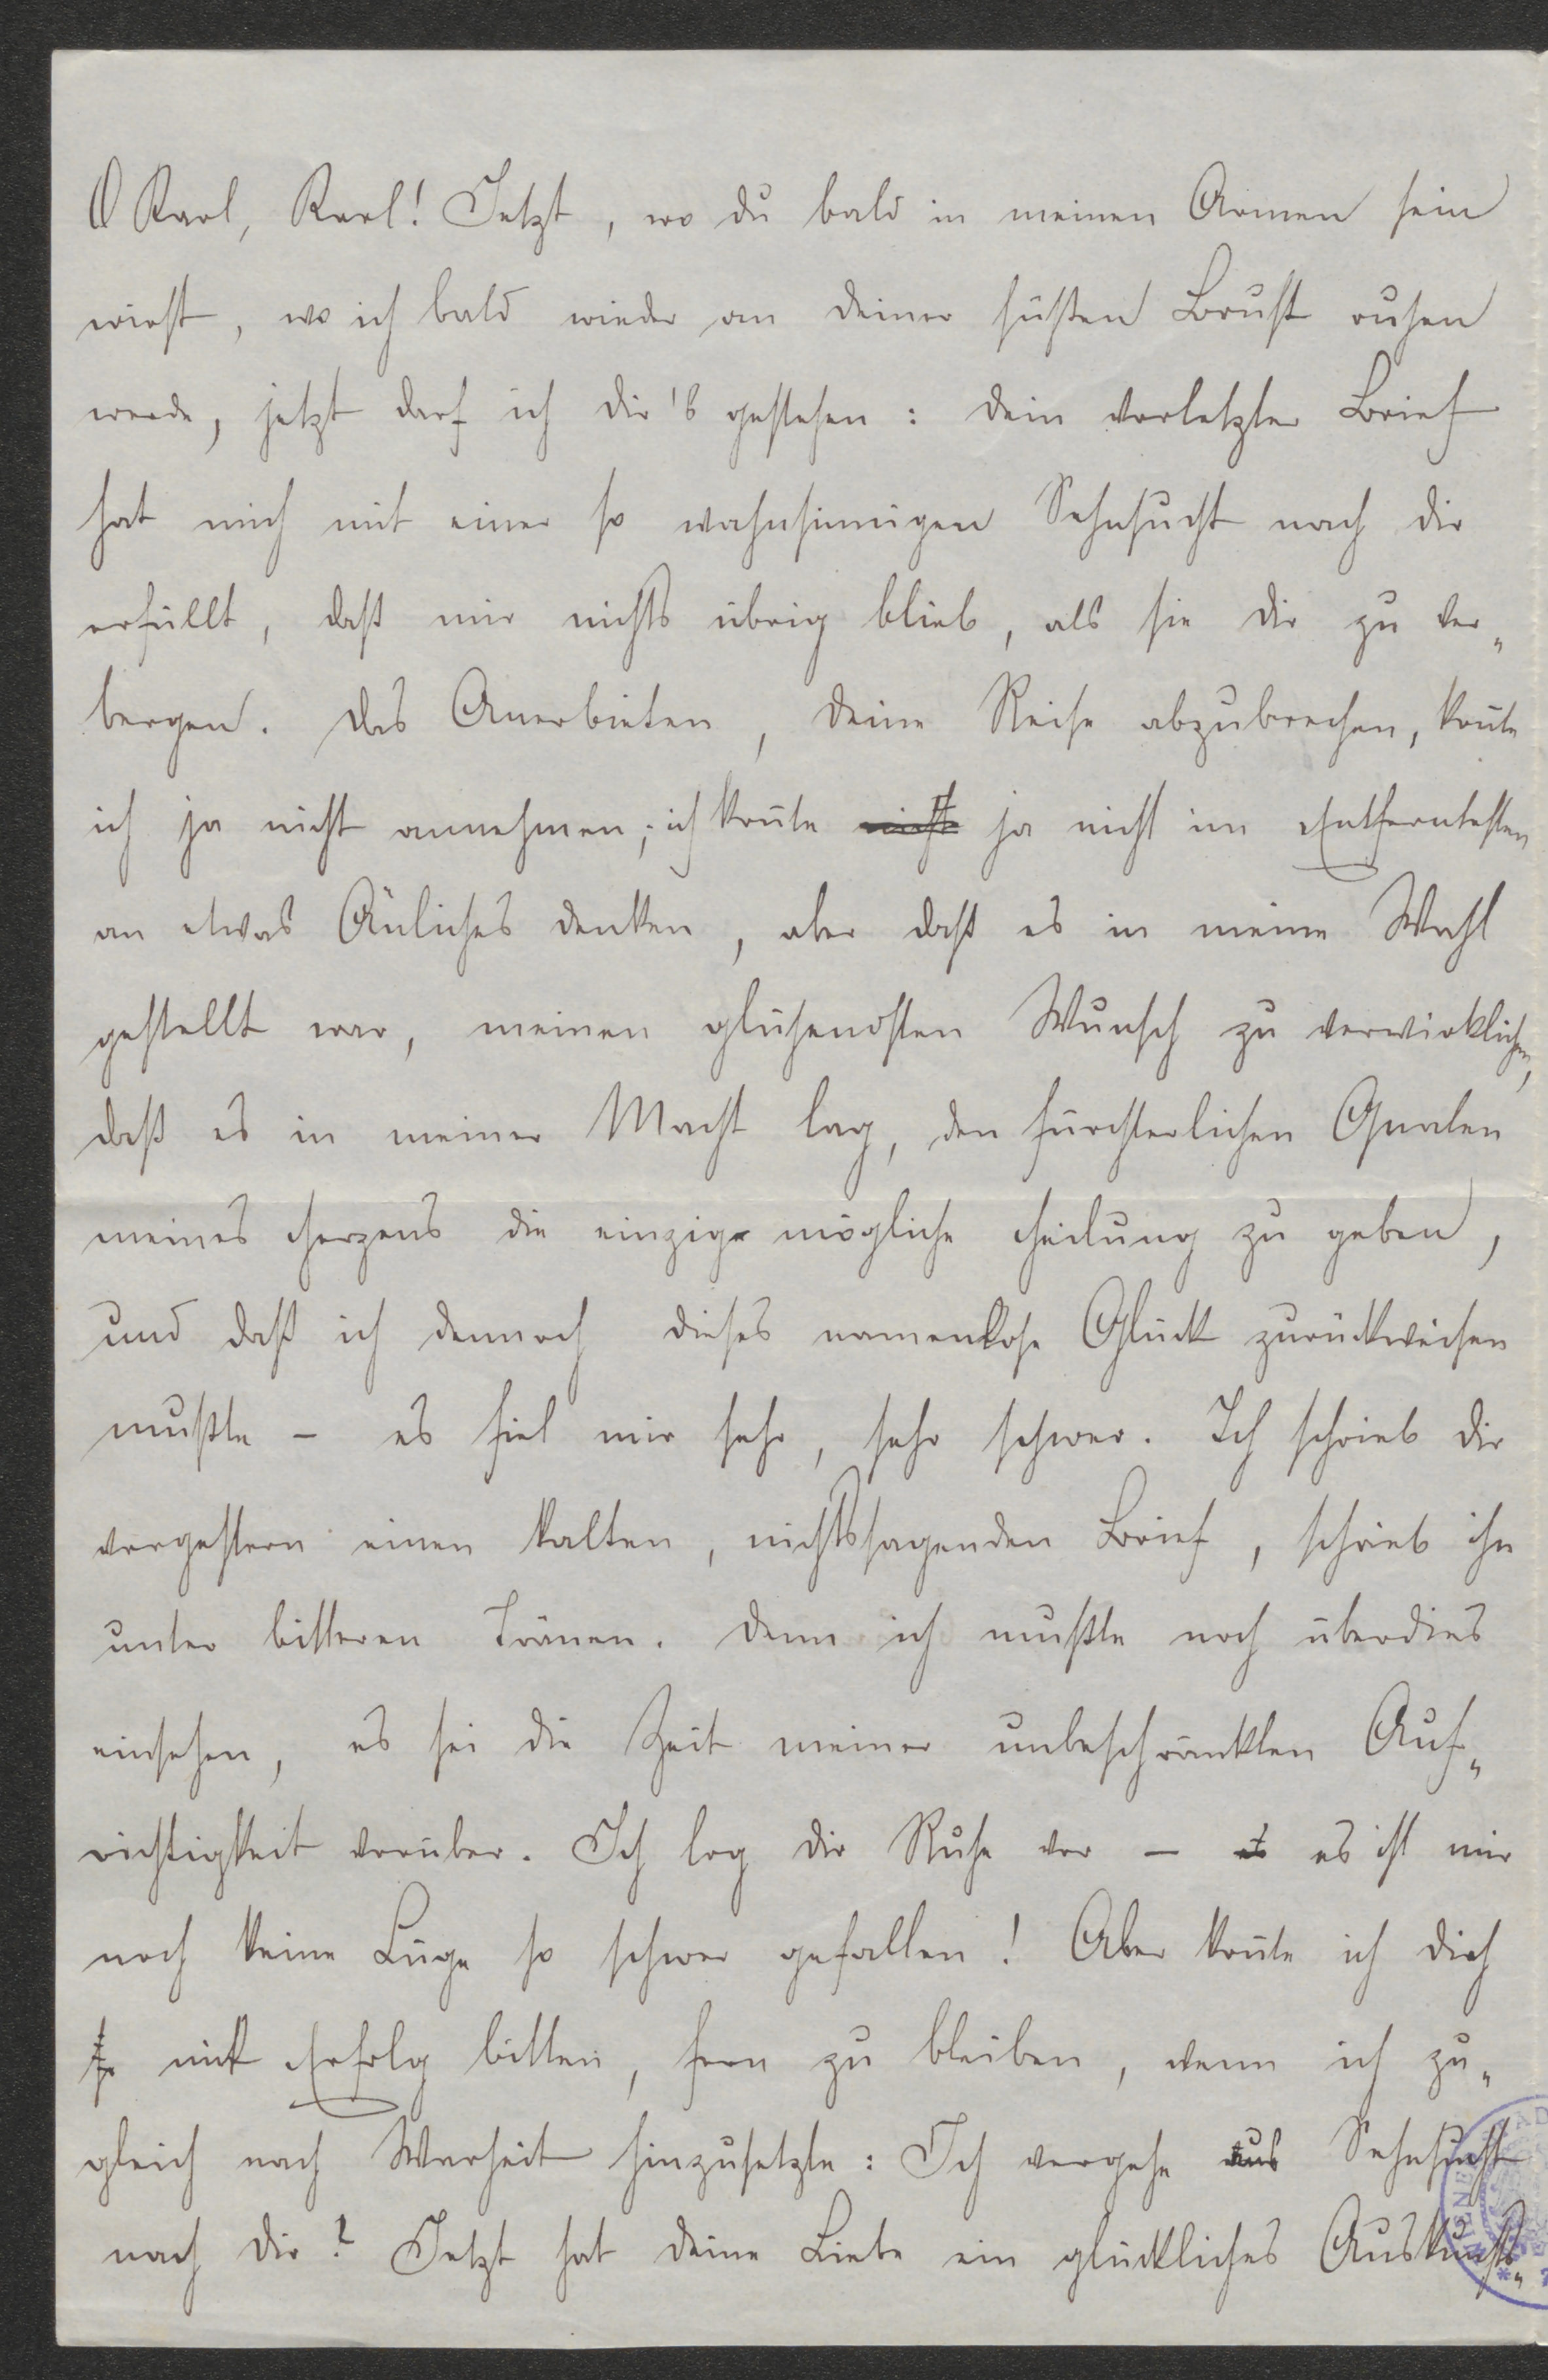 O Karl, Karl! Jetzt, wo du bald in meinen Armen sein
wirst, wo ich bald wieder an deiner süßen Brust ruhen
werde, jetzt darf ich dir's gestehen: dein vorletzter Brief
hat mich mit einer so wahnsinnigen Sehnsucht nach dir
erfüllt, daß mir nichts übrig blieb, als sie dir zu ver„
bergen. Das Anerbieten, deine Reise abzubrechen, kon̄te
ich ja nicht annehmen; ich kon̄te nicht ja nicht im Entferntesten
an etwas Änliches denken, aber daß es in meine Wahl
gestellt war, meinen glühendsten Wunsch zu verwirklichen,
daß es in meiner Macht lag, den fürchterlichen Qualen
meines Herzens die einzig mögliche Heilung zu geben,
und daß ich dennoch dieses namenlose Glück zurückweisen
mußte – es fiel mir sehr, sehr schwer. Ich schrieb dir
vorgestern einen kalten, nichtssagenden Brief, schrieb ihn
unter bitteren Tränen. Denn ich mußte noch überdies
einsehen, es sei die Zeit meiner unbeschränkten Auf„
richtigkeit vorüber. Ich log dir Ruhe vor – es es ist mir
noch keine Lüge so schwer gefallen! Aber kon̄te ich dich
mit Erfolg bitten, fern zu bleiben, wenn ich zu„
gleich nach Warheit hinzusetzte: Ich vergehe aus Sehnsucht
nach dir? Jetzt hat deine Liebe ein glückliches Auskunfts„